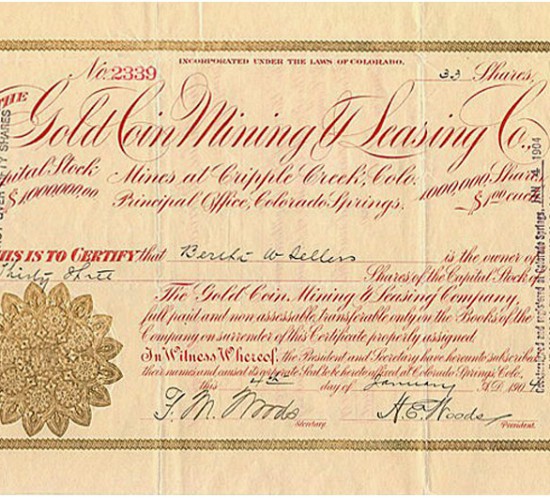 No. 2339
INCORPORATED UNDER THE LAWS OF COLORADO.
33 Shares,
THE
Gold Coin Mining & Leasing Co.,
Capital Stock
$1,000,000.00
Mines at Cripple Creek, Colo.
Principal Office, Colorado Springs.
1,000,000 Shares
$1.00 each
THIS IS TO CERTIFY that Bertha W Sellers is the owner of
Thirty three Shares of the Capital Stock of
The Gold Coin Mining & Leasing Company,
full paid and non assessable, transferable only on the Books of the
Company on surrender of this Certificate properly assigned.
In Witness Whereof, the President and Secretary have hereunto subscribed
their names and caused its corporate Seal to be hereto affixed at Colorado Springs, Colo.
this 4th day of January A.D. 190
F. M. Woods
Secretary.
H. E. Woods
President.
FIFTY SHARES
Colorado Springs, JAN 1904